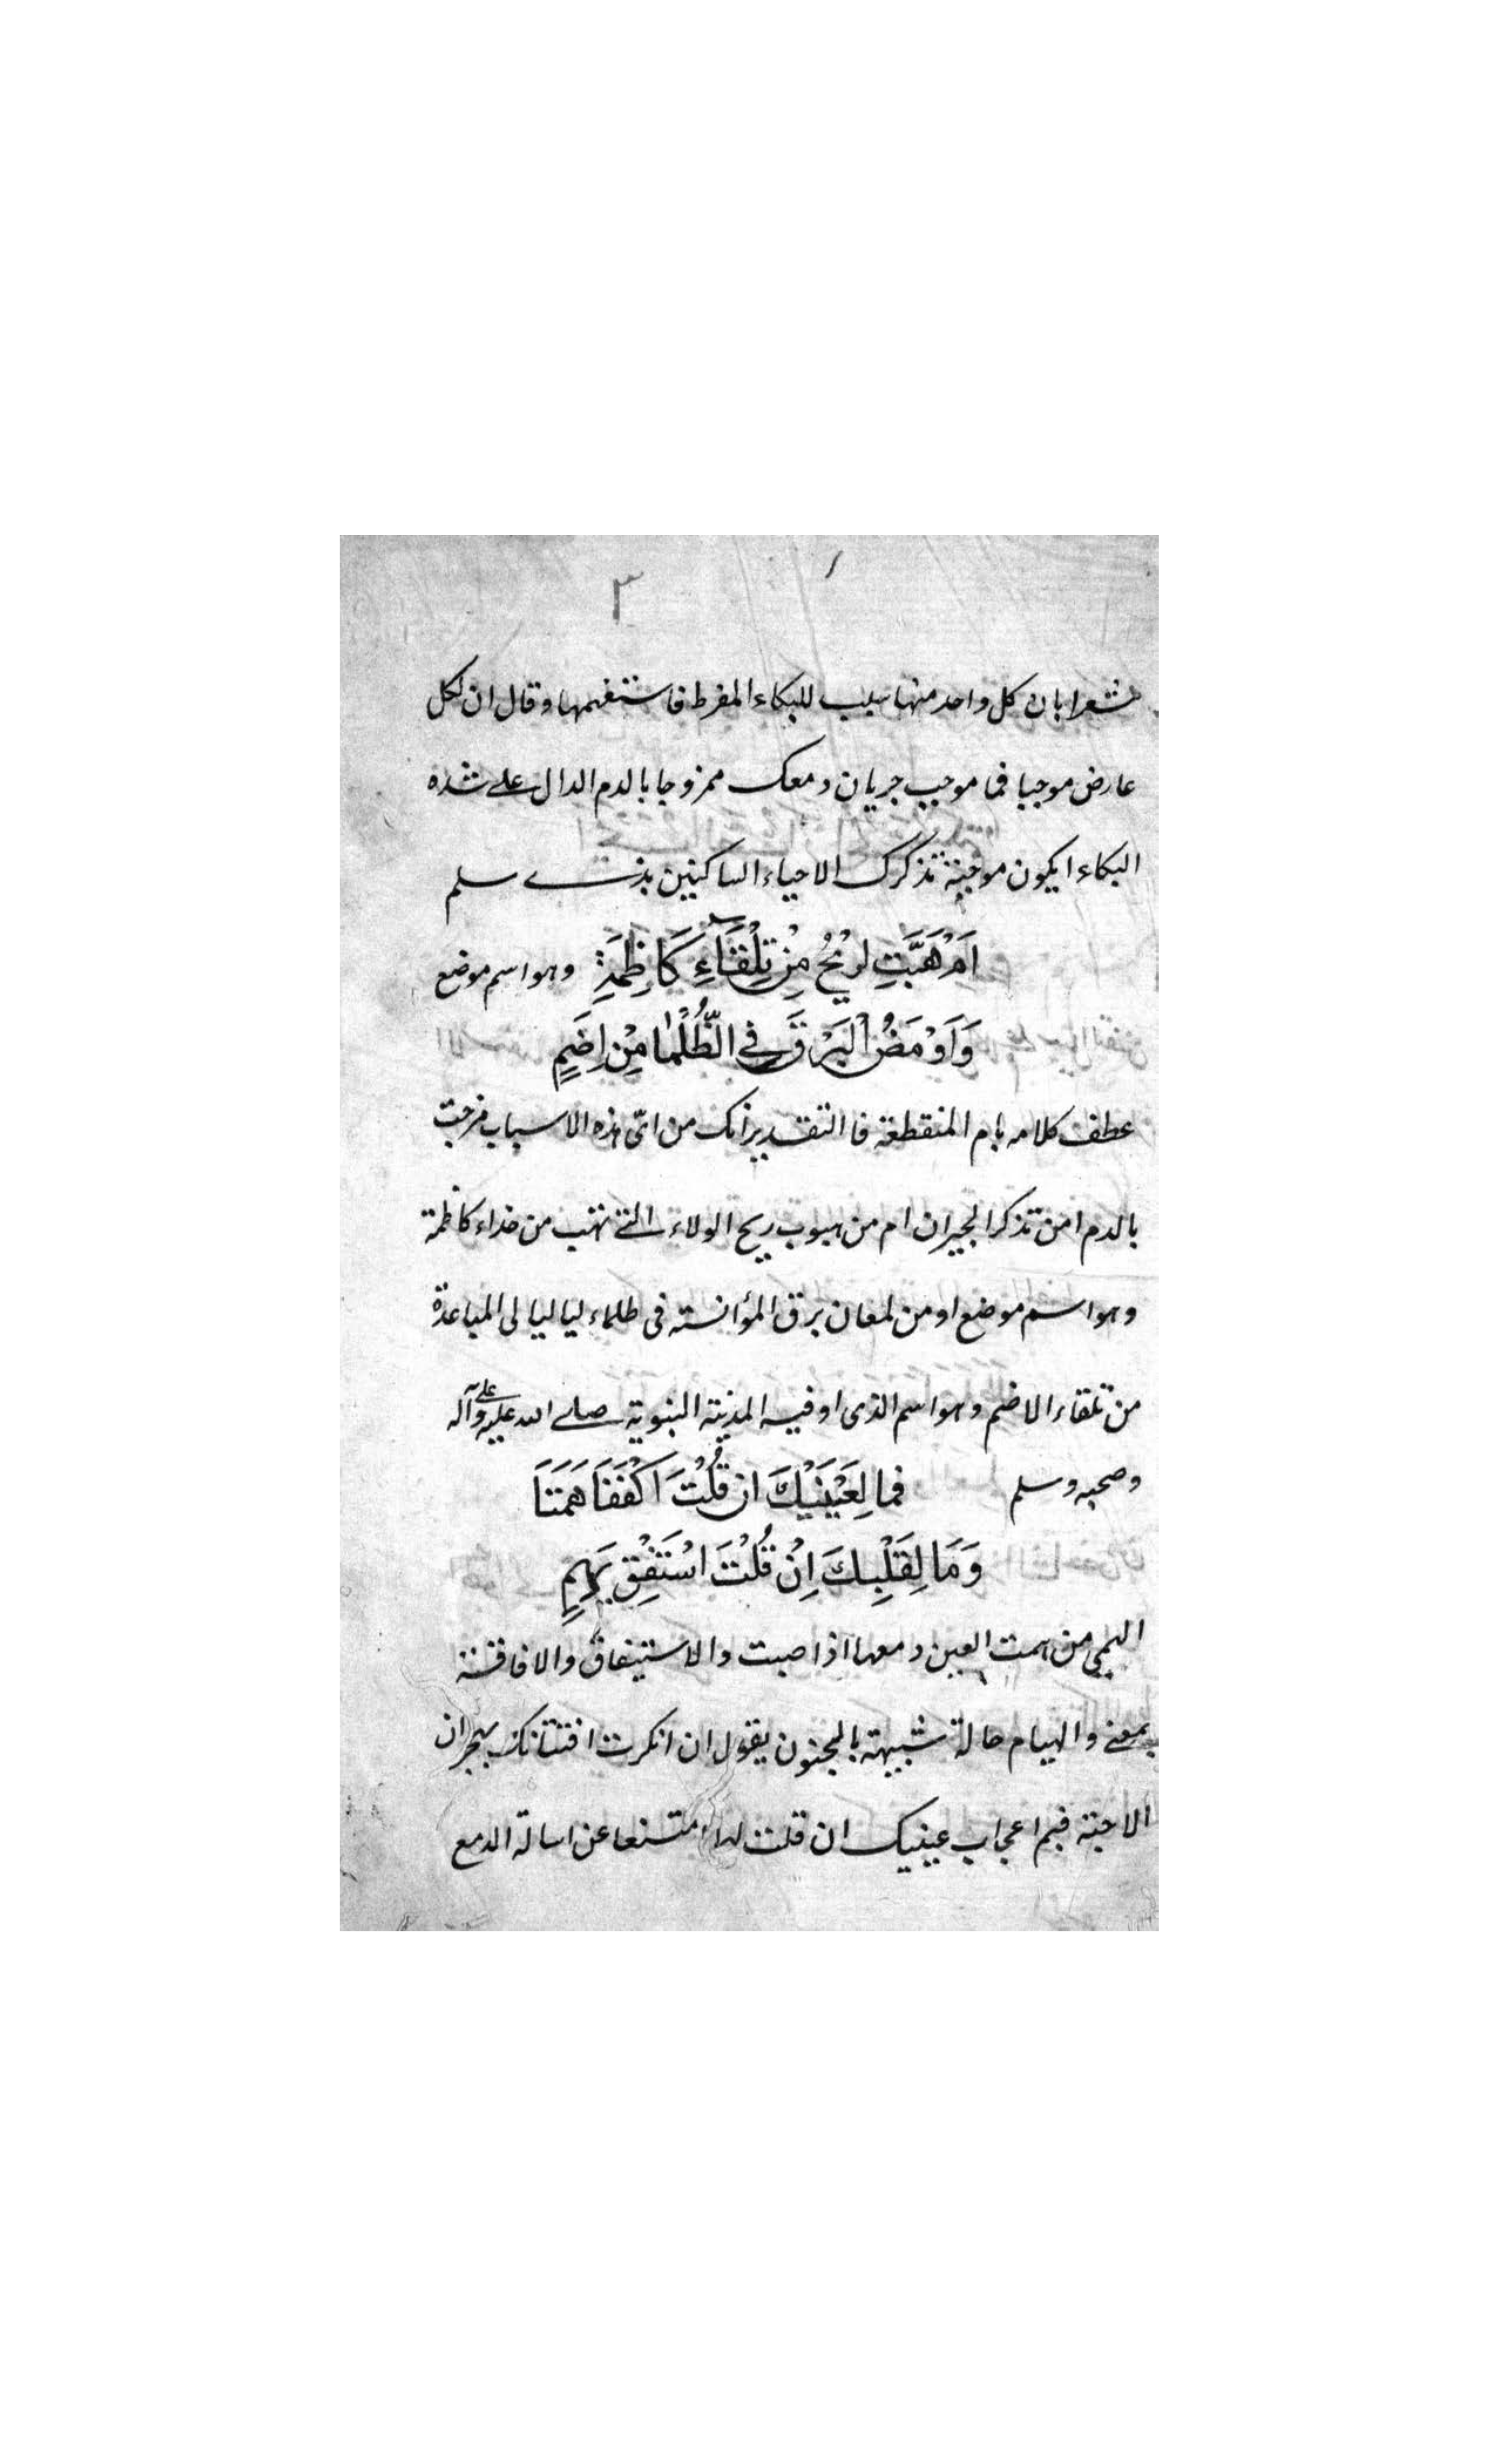 ٣
مشعرا بان كل واحد منها سبب للبكاء المفرط فاستفهمها وقال ان لكل
عارض موجبا فما موجب جريان دمعك ممزوجا بالدم الدال على شده
البكاء ايكون موجبة تذكرك الاحباء الساكنين بذى سلم
اَمْ هَبَّتِ الرِّيْحُ مِنْ تِلْقَاءِ كَاظِمَةٍ وهو اسم موضع
وَاَوْمَضَ الْبَرْقُ فِي الظُّلْمَا مِنْ اِضَمٍ
عطف كلامه بام المنقطعة فا التقدير انك من اىّ هذه الاسباب مزجت
بالدم امن تذكر الجيران ام من هبوب ريح الولاء التى تهب من حذاء كاظمة
وهو اسم موضع او من لمعان برق المؤانسته فى ظلماء ليا ليالى المباعدة
من تلقاء الاضم وهو اسم الذى او فيه المدينة النبوية صلى الله عليه وعلى آله
وصحبه وسلم فما لِعَيْنَيْكَ ان قُلْتَ اكْفُفَا هَمَتَا
وَمَا لِقَلْبِكَ اِنْ قُلْتَ اسْتَفِقْ يَهِمِ
الهمى من همت العين دمعها اذا صبت والاستيفاق والافاقة
بمعنى والهيام حالة شبيهة بالجنون يقول ان انكرت افتتانك بهجران
الاحبة فبم اعجاب عينيك ان قلت لهما امتنعا عن اسالة الدمع